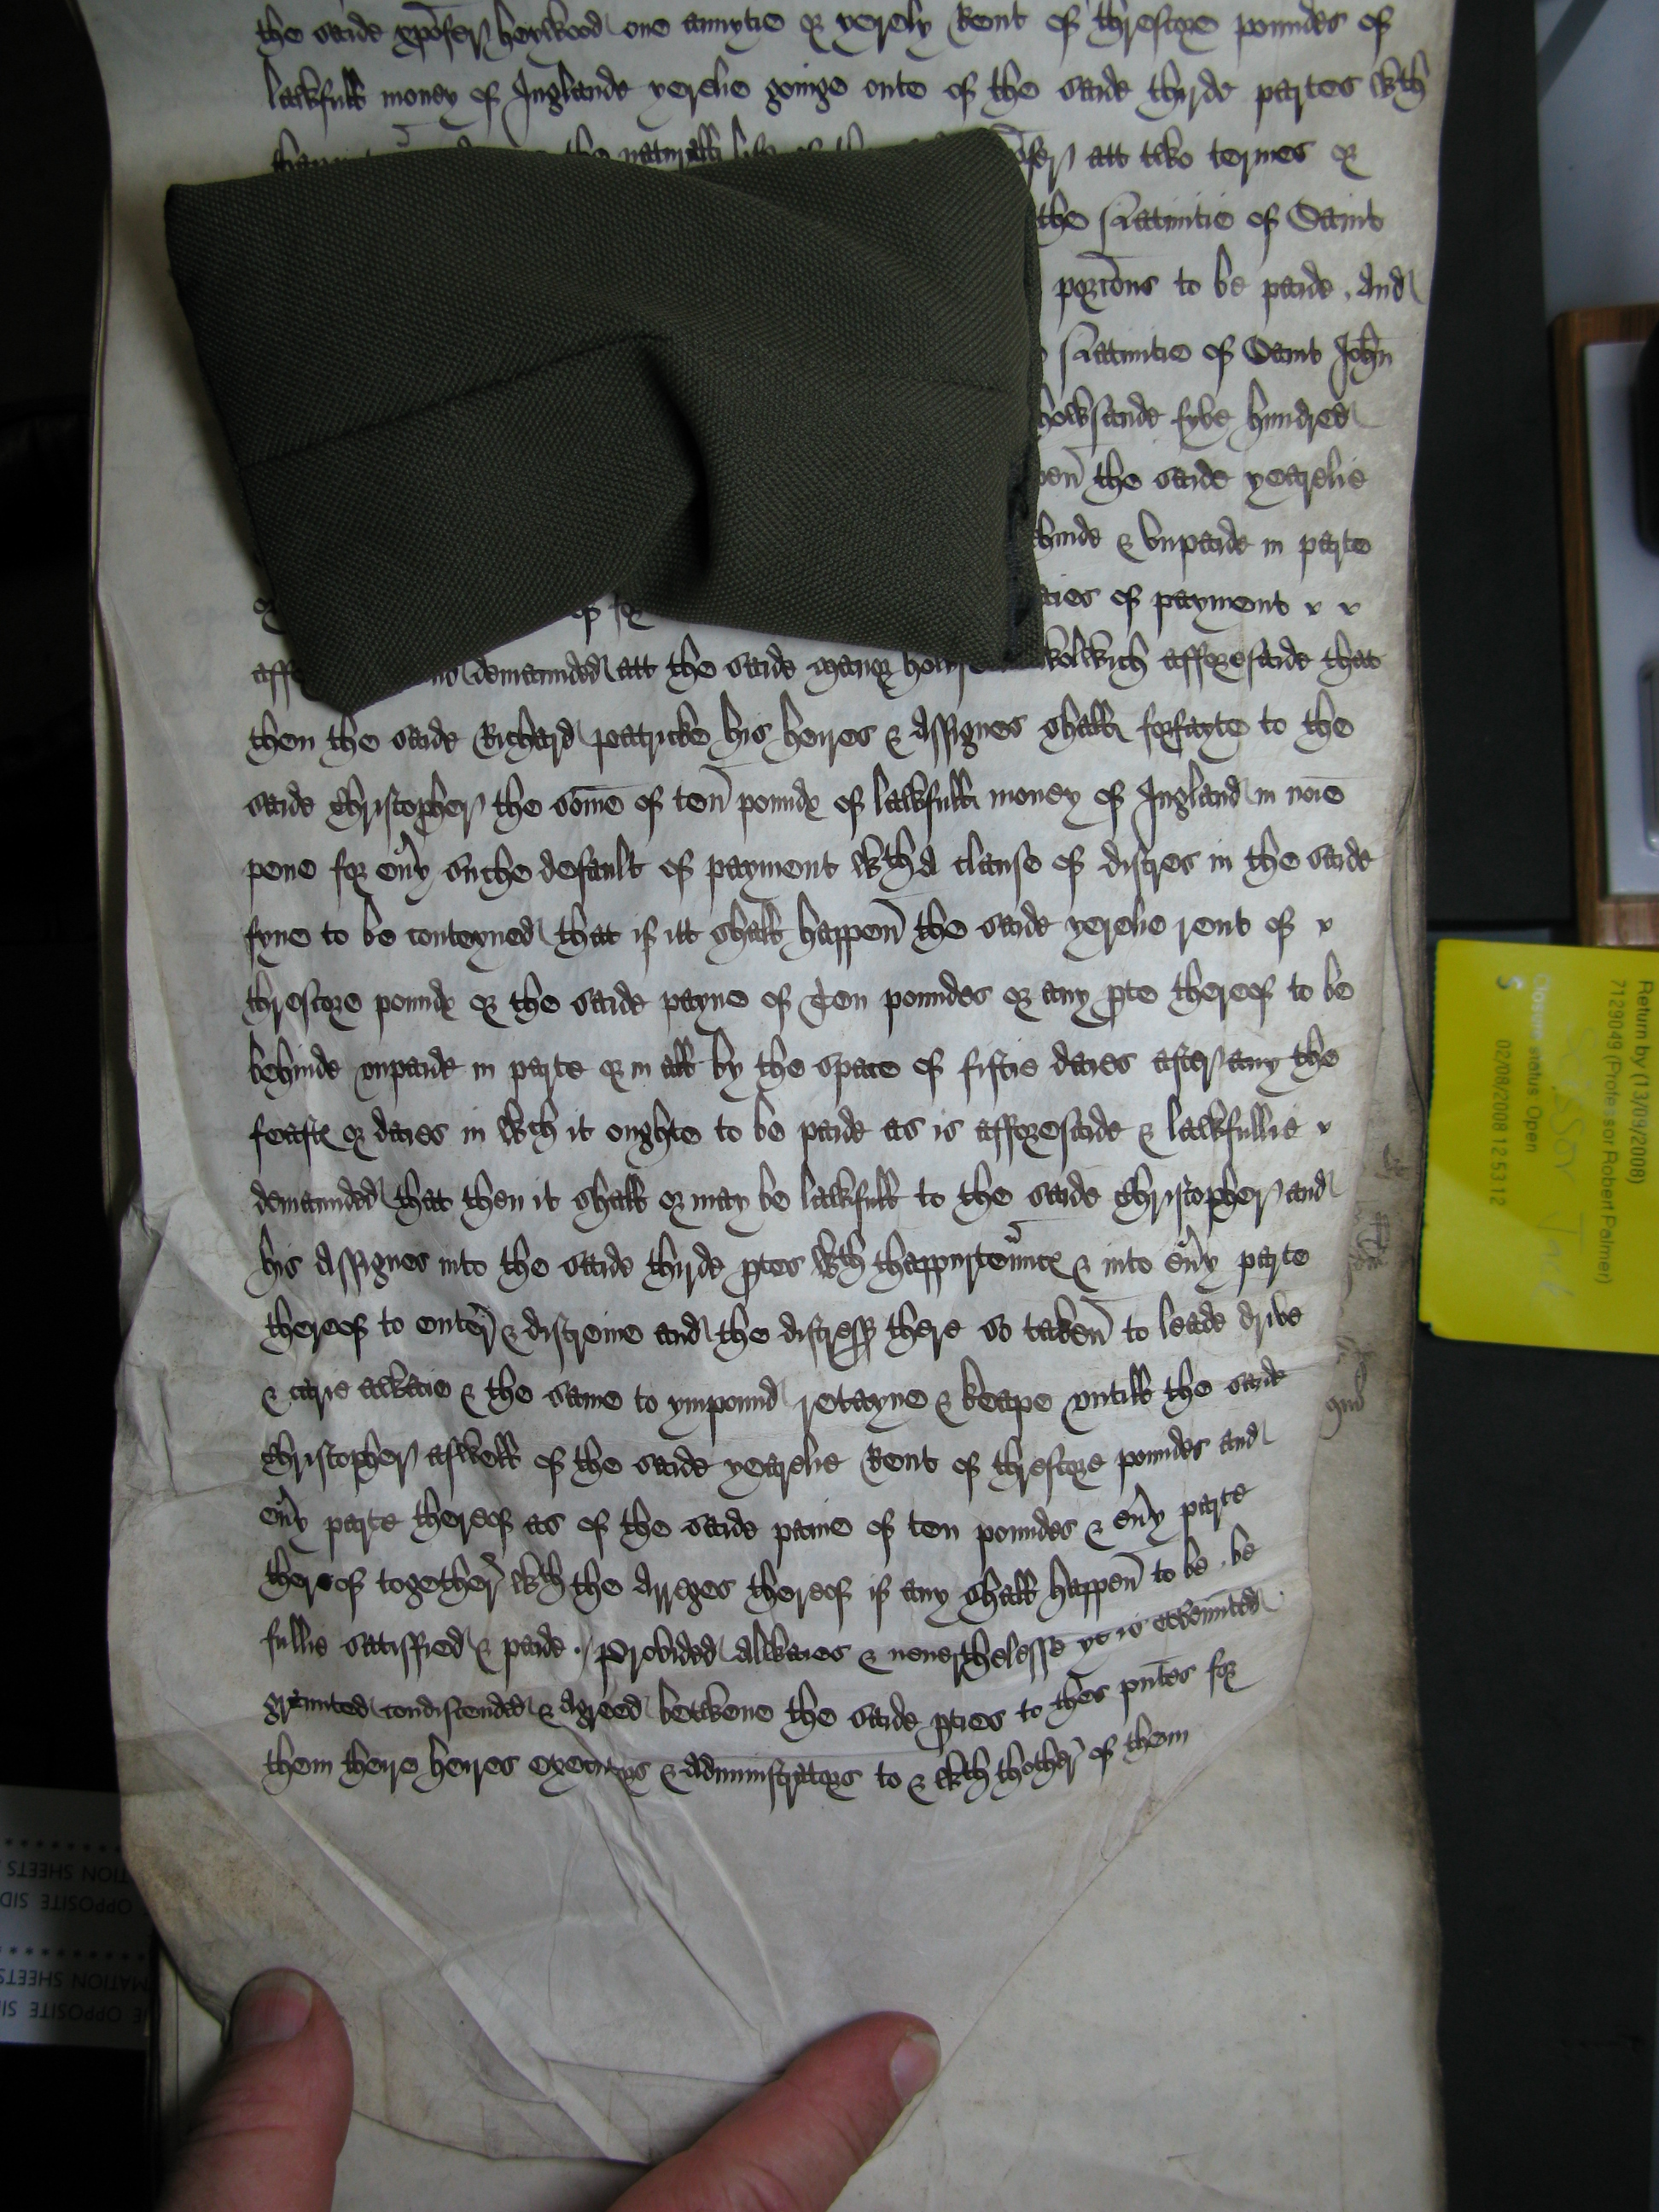 the saide xpofer heywood one annytie or yerely Rent of threscore poundes of
lawfull money of Inglande yerelie goinge oute of the saide thyrde partes wth
the naturall life of the att two termes or
the Nativitie of Saint
porcons to be paide . And
Nativitie of Saint John
thowsande fyve hundred
the saide yearelie
behinde & unpaide in parte
of daies of payment x x
demaunded att the saide manor howse afforesaide that
then the saide Richard patricke his heires & Assignes shall forfayte to the
saide Christopher the some of ten pounde of lawfull money of Ingland in noie
pene for evy suche default of payment wth a clause of distres in the saide
fyne to be conteyned that if itt shall happen the saide yerelie rent of x
threscore pounde or the saide payne of Ten poundes or any pte thereof to be
behinde unpaide in parte or in all by the space of fiftie daies after any the
feastes or daies in wch it oughte to be paide as is afforesaide & lawfullie x
demaunded that then it shall or may be lawfull to the saide Christopher and
his Assignes into the saide thirde ptes wth thappurtennces & into evy parte
thereof to enter & distreine and the distresses there so taken to leade drive
& carie awaie & the same to ympound retayne & keape untill the saide
Christopher aswell of the saide yearelie Rent of threscore poundes and
evy parte thereof as of the saide paine of ten poundes & evy parte
thereof together wth the Arreges thereof if any shall happen to be . be
fullie satisfied & paide ./ Provided Alwaies & neverthelesse yt is covennted
graunted condiscended & Agreed betwene the saide pties to thes pntes for
them theire heires executors & Administrators to & wth thother of them
Return by (13/09/2008)
7129049 (Professor Robert Palmer)
Closure status Open
02/08/2008 12 53 12
5
OPPOSITE SID
MATION SHEETS